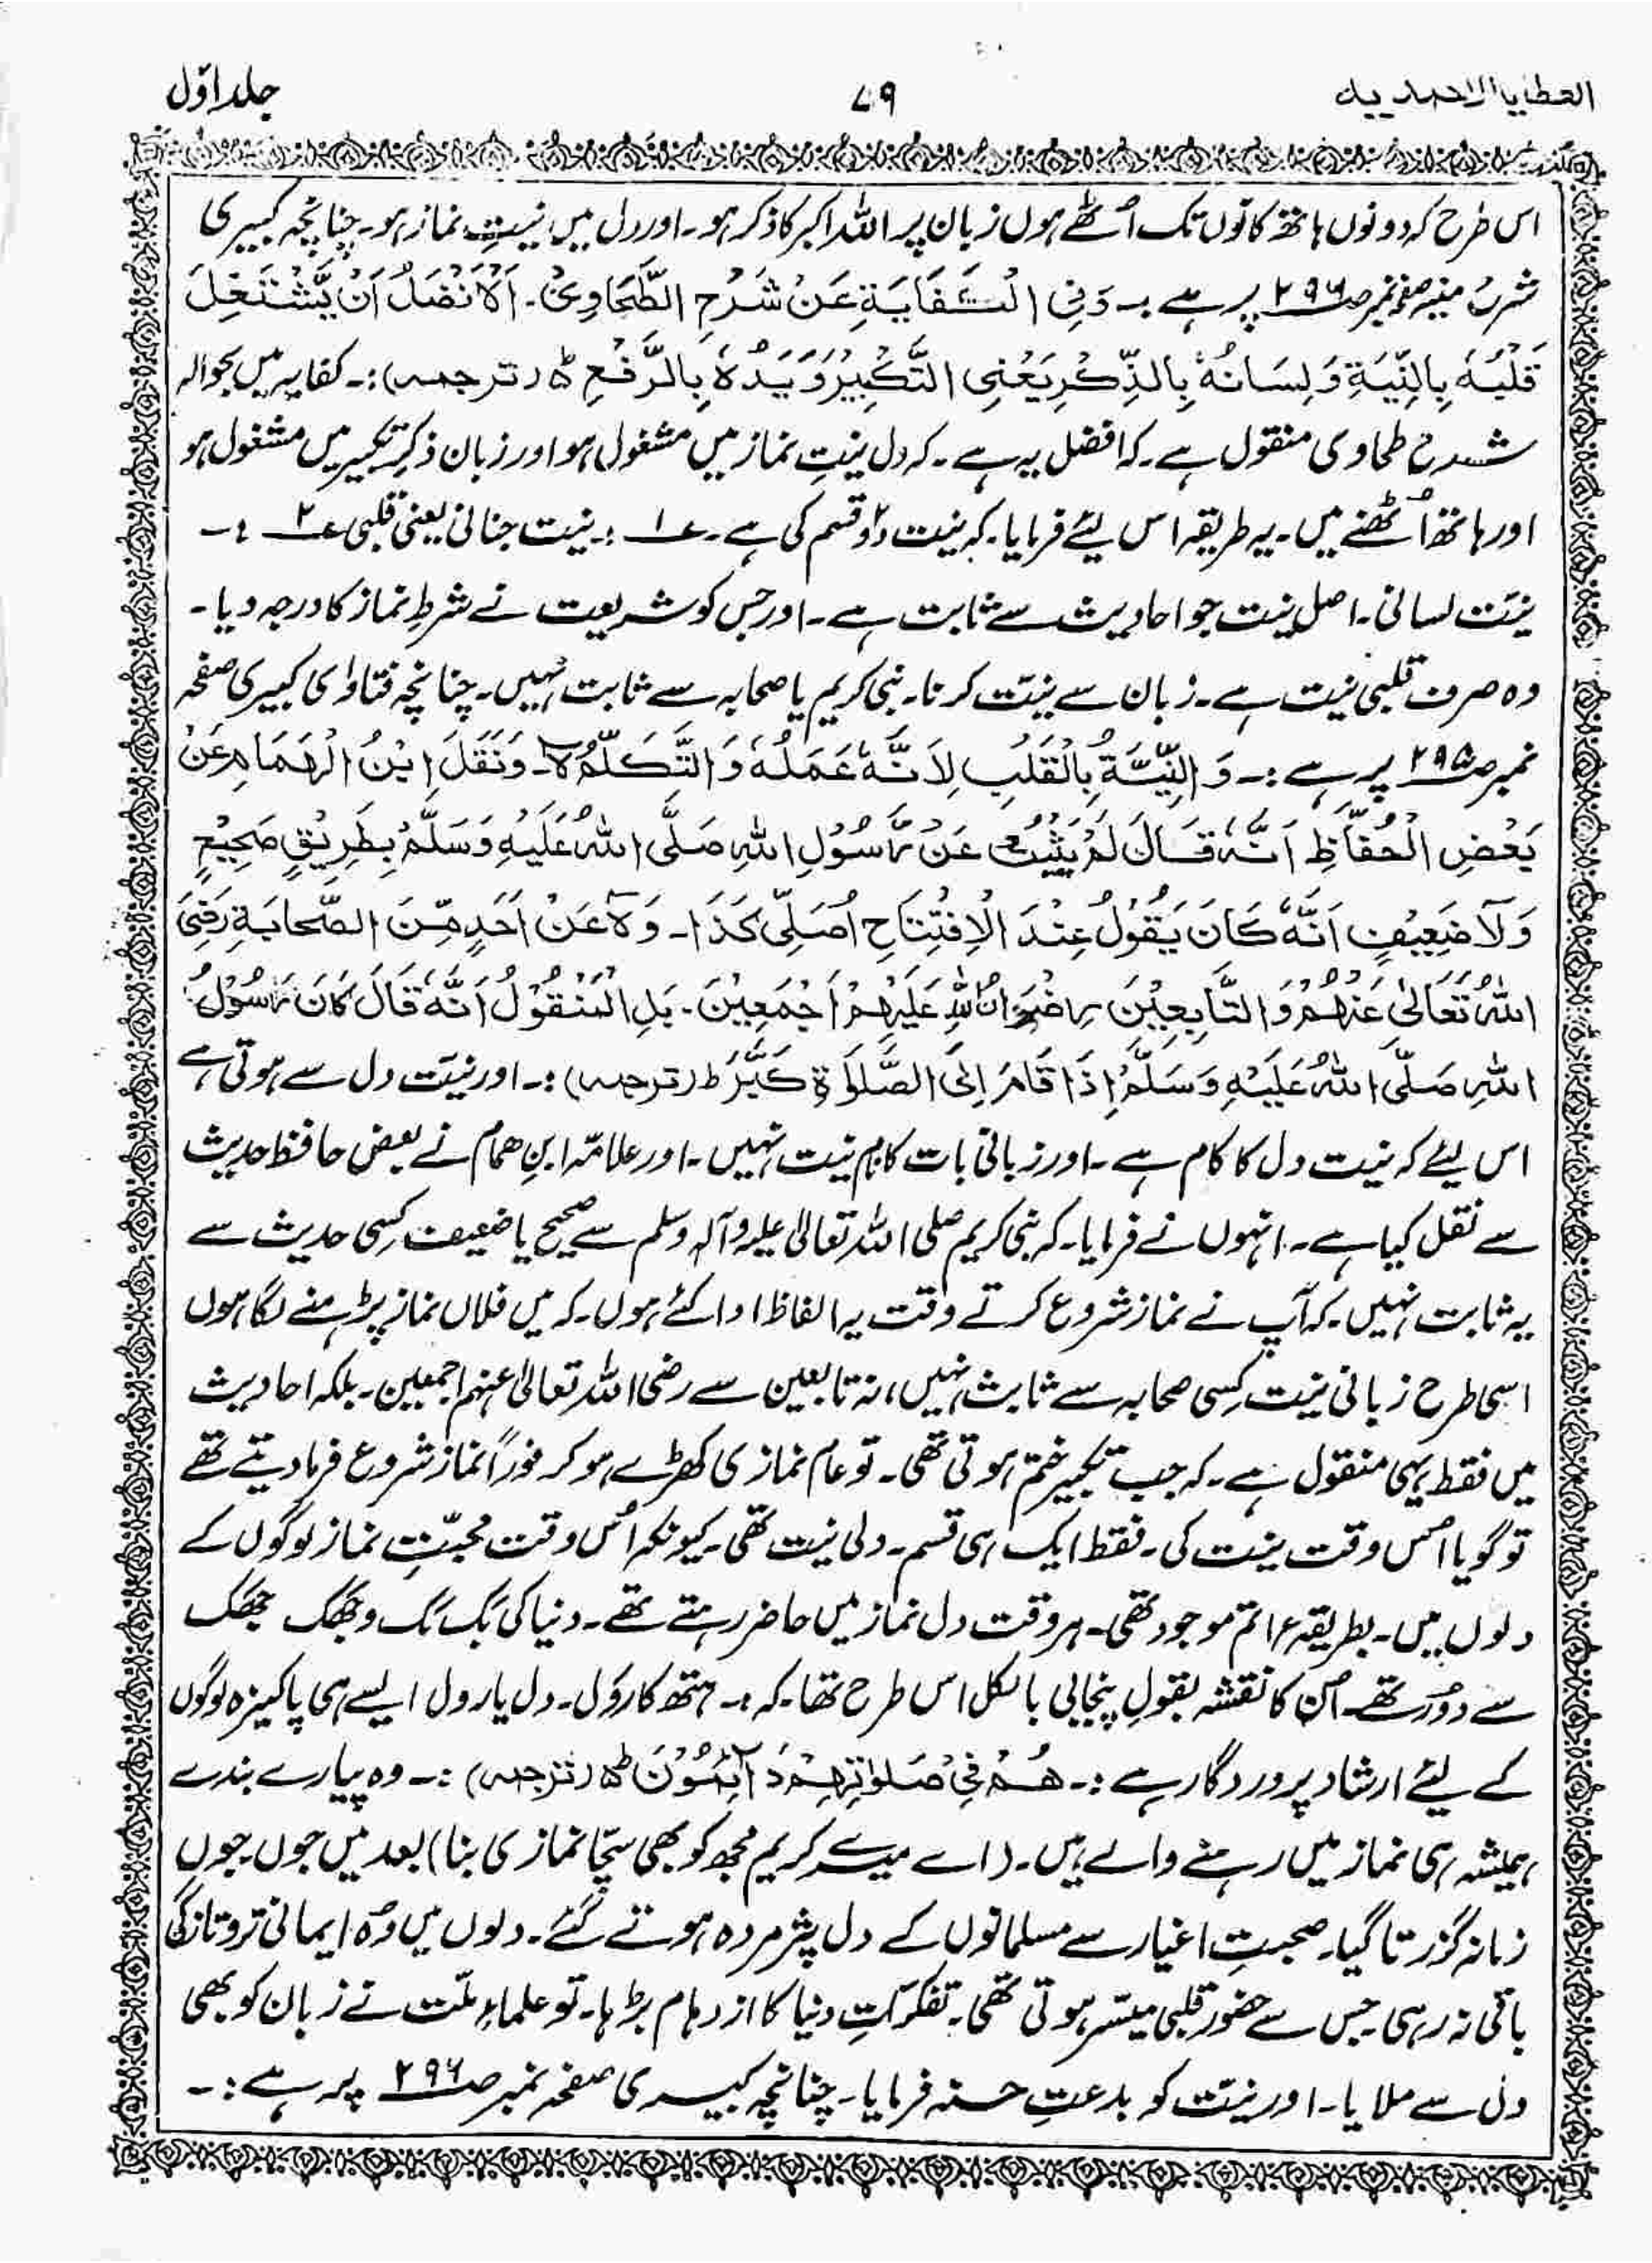 العطایا الاحمدیہ ۷۹ جلد اوّل
اس طرح کہ دونوں ہاتھ کانوں تک اُٹھے ہوں زبان پر اللہ اکبر کا ذکر ہو۔ اور دل میں نیتِ نماز ہو۔ چنانچہ کبیری
شرح منیہ صفحہ نمبر ص۲۹۶ پر ہے :۔ وَفِی الْکِفَایَةِ عَنْ شَرْحِ الطَّحَاوِیْ۔ اَلْاَفْضَلُ اَنْ یَّشْتَغِلَ
قَلْبُهٗ بِالنِّیَّةِ وَلِسَانُهٗ بِالذِّکْرِ یَعْنِی التَّکْبِیْرُ وَیَدُهٗ بِالرَّفْعِ ط (ترجمہ) :۔ کفایہ میں بحوالہ
شرح طحاوی منقول ہے۔ کہ افضل یہ ہے۔ کہ دل نیتِ نماز میں مشغول ہو اور زبان ذکرِ تکبیر میں مشغول ہو
اور ہاتھ اُٹھنے میں۔ یہ طریقہ اس لیئے فرمایا۔ کہ نیت دو۲ قسم کی ہے۔ ؏۱ :۔ نیت جنانی یعنی قلبی ؏۲ :۔
نیّت لسانی۔ اصل نیت جو احادیث سے ثابت ہے۔ اور جس کو شریعت نے شرطِ نماز کا درجہ دیا۔
وہ صرف قلبی نیت ہے۔ زبان سے نیّت کرنا۔ نبی کریم یا صحابہ سے ثابت نہیں۔ چنانچہ فتاوای کبیری صفحہ
نمبر ص۲۹۵ پر ہے :۔ وَ النِّیَّةُ بِالْقَلْبِ لِاَنَّهٗ عَمَلُهٗ وَالتَّکَلُّمُ لَا۔ وَنَقَلَ ابْنُ الْهَمَامِ عَنْ
بَعْضِ الْحُفَّاظِ اَنَّهٗ قَالَ لَمْ یَثْبُتْ عَنْ رَّسُوْلِ اللهِ صَلَّی اللهُ عَلَیْهِ وَسَلَّمَ بِطَرِیْقٍ صَحِیْحٍ
وَلَا ضَعِیْفٍ اَنَّهٗ کَانَ یَقُوْلُ عِنْدَ الْاِفْتِتَاحِ اُصَلِّی کَذَا۔ وَلَا عَنْ اَحَدٍ مِّنَ الصَّحَابَةِ رَضِیَ
اللهُ تَعَالٰی عَنْهُمْ وَالتَّابِعِیْنَ رِضْوَانُ اللهِ عَلَیْهِمْ اَجْمَعِیْنَ۔ بَلِ الْمَنْقُوْلُ اَنَّهٗ قَالَ کَانَ رَسُوْلُ
اللهِ صَلَّی اللهُ عَلَیْهِ وَسَلَّمَ اِذَا قَامَ اِلَی الصَّلوٰةِ کَبَّرَ ط (ترجمہ) :۔ اور نیّت دل سے ہوتی ہے
اس لیئے کہ نیت دل کا کام ہے۔ اور زبانی بات کا نام نیت نہیں۔ اور علامّہ ابنِ ھمام نے بعض حافظ حدیث
سے نقل کیا ہے۔ انہوں نے فرمایا۔ کہ نبی کریم صلی اللہ تعالیٰ علیہ وآلہ وسلم سے صحیح یا ضعیف کِسی حدیث سے
یہ ثابت نہیں۔ کہ آپ نے نماز شروع کرتے وقت یہ الفاظ ادا کئے ہوں۔ کہ میں فلاں نماز پڑہنے لگا ہوں
اسی طرح زبانی نیت کِسی صحابہ سے ثابت نہیں، نہ تابعین سے رضی اللہ تعالیٰ عنہم اجمعین۔ بلکہ احادیث
میں فقط یہی منقول ہے۔ کہ جب تکبیر ختم ہوتی تھی۔ تو عام نمازی کھڑے ہو کر فوراً نماز شروع فرما دیتے تھے
تو گویا اُس وقت نیت کی۔ فقط ایک ہی قسم۔ دلی نیت تھی۔ کیونکہ اُس وقت محبّتِ نماز لوگوں کے
دلوں میں۔ بطریقہ اتم موجود تھی۔ ہر وقت دل نماز میں حاضر رہتے تھے۔ دنیا کی بک بک و جھک جھک
سے دُور تھے۔ اُن کا نقشہ بقولِ پنجابی بالکل اس طرح تھا۔ کہ :۔ ہتھ کار وَل۔ دل یار ول ایسے ہی پاکیزہ لوگوں
کے لیئے ارشاد پروردگار ہے :۔ هُمْ فِیْ صَلٰوتِهِمْ دَآئِمُوْنَ ط (ترجمہ) :۔ وہ پیارے بندے
ہمیشہ ہی نماز میں رہنے والے ہیں۔ (اے میرے کریم مجھ کو بھی سچّا نمازی بنا) بعد میں جوں جوں
زمانہ گزرتا گیا۔ صحبتِ اغیار سے مسلمانوں کے دل پژمردہ ہوتے گئے۔ دلوں میں وُہ ایمانی تروتازگی
باقی نہ رہی جس سے حضورِ قلبی میسّر ہوتی تھی۔ تفکراتِ دنیا کا ازدہام بڑہا۔ تو علماءِ ملّت نے زبان کو بھی
دل سے ملایا۔ اور نیّت کو بدعتِ حسنہ فرمایا۔ چنانچہ کبیری صفحہ نمبر ص۲۹۶ پر ہے :۔